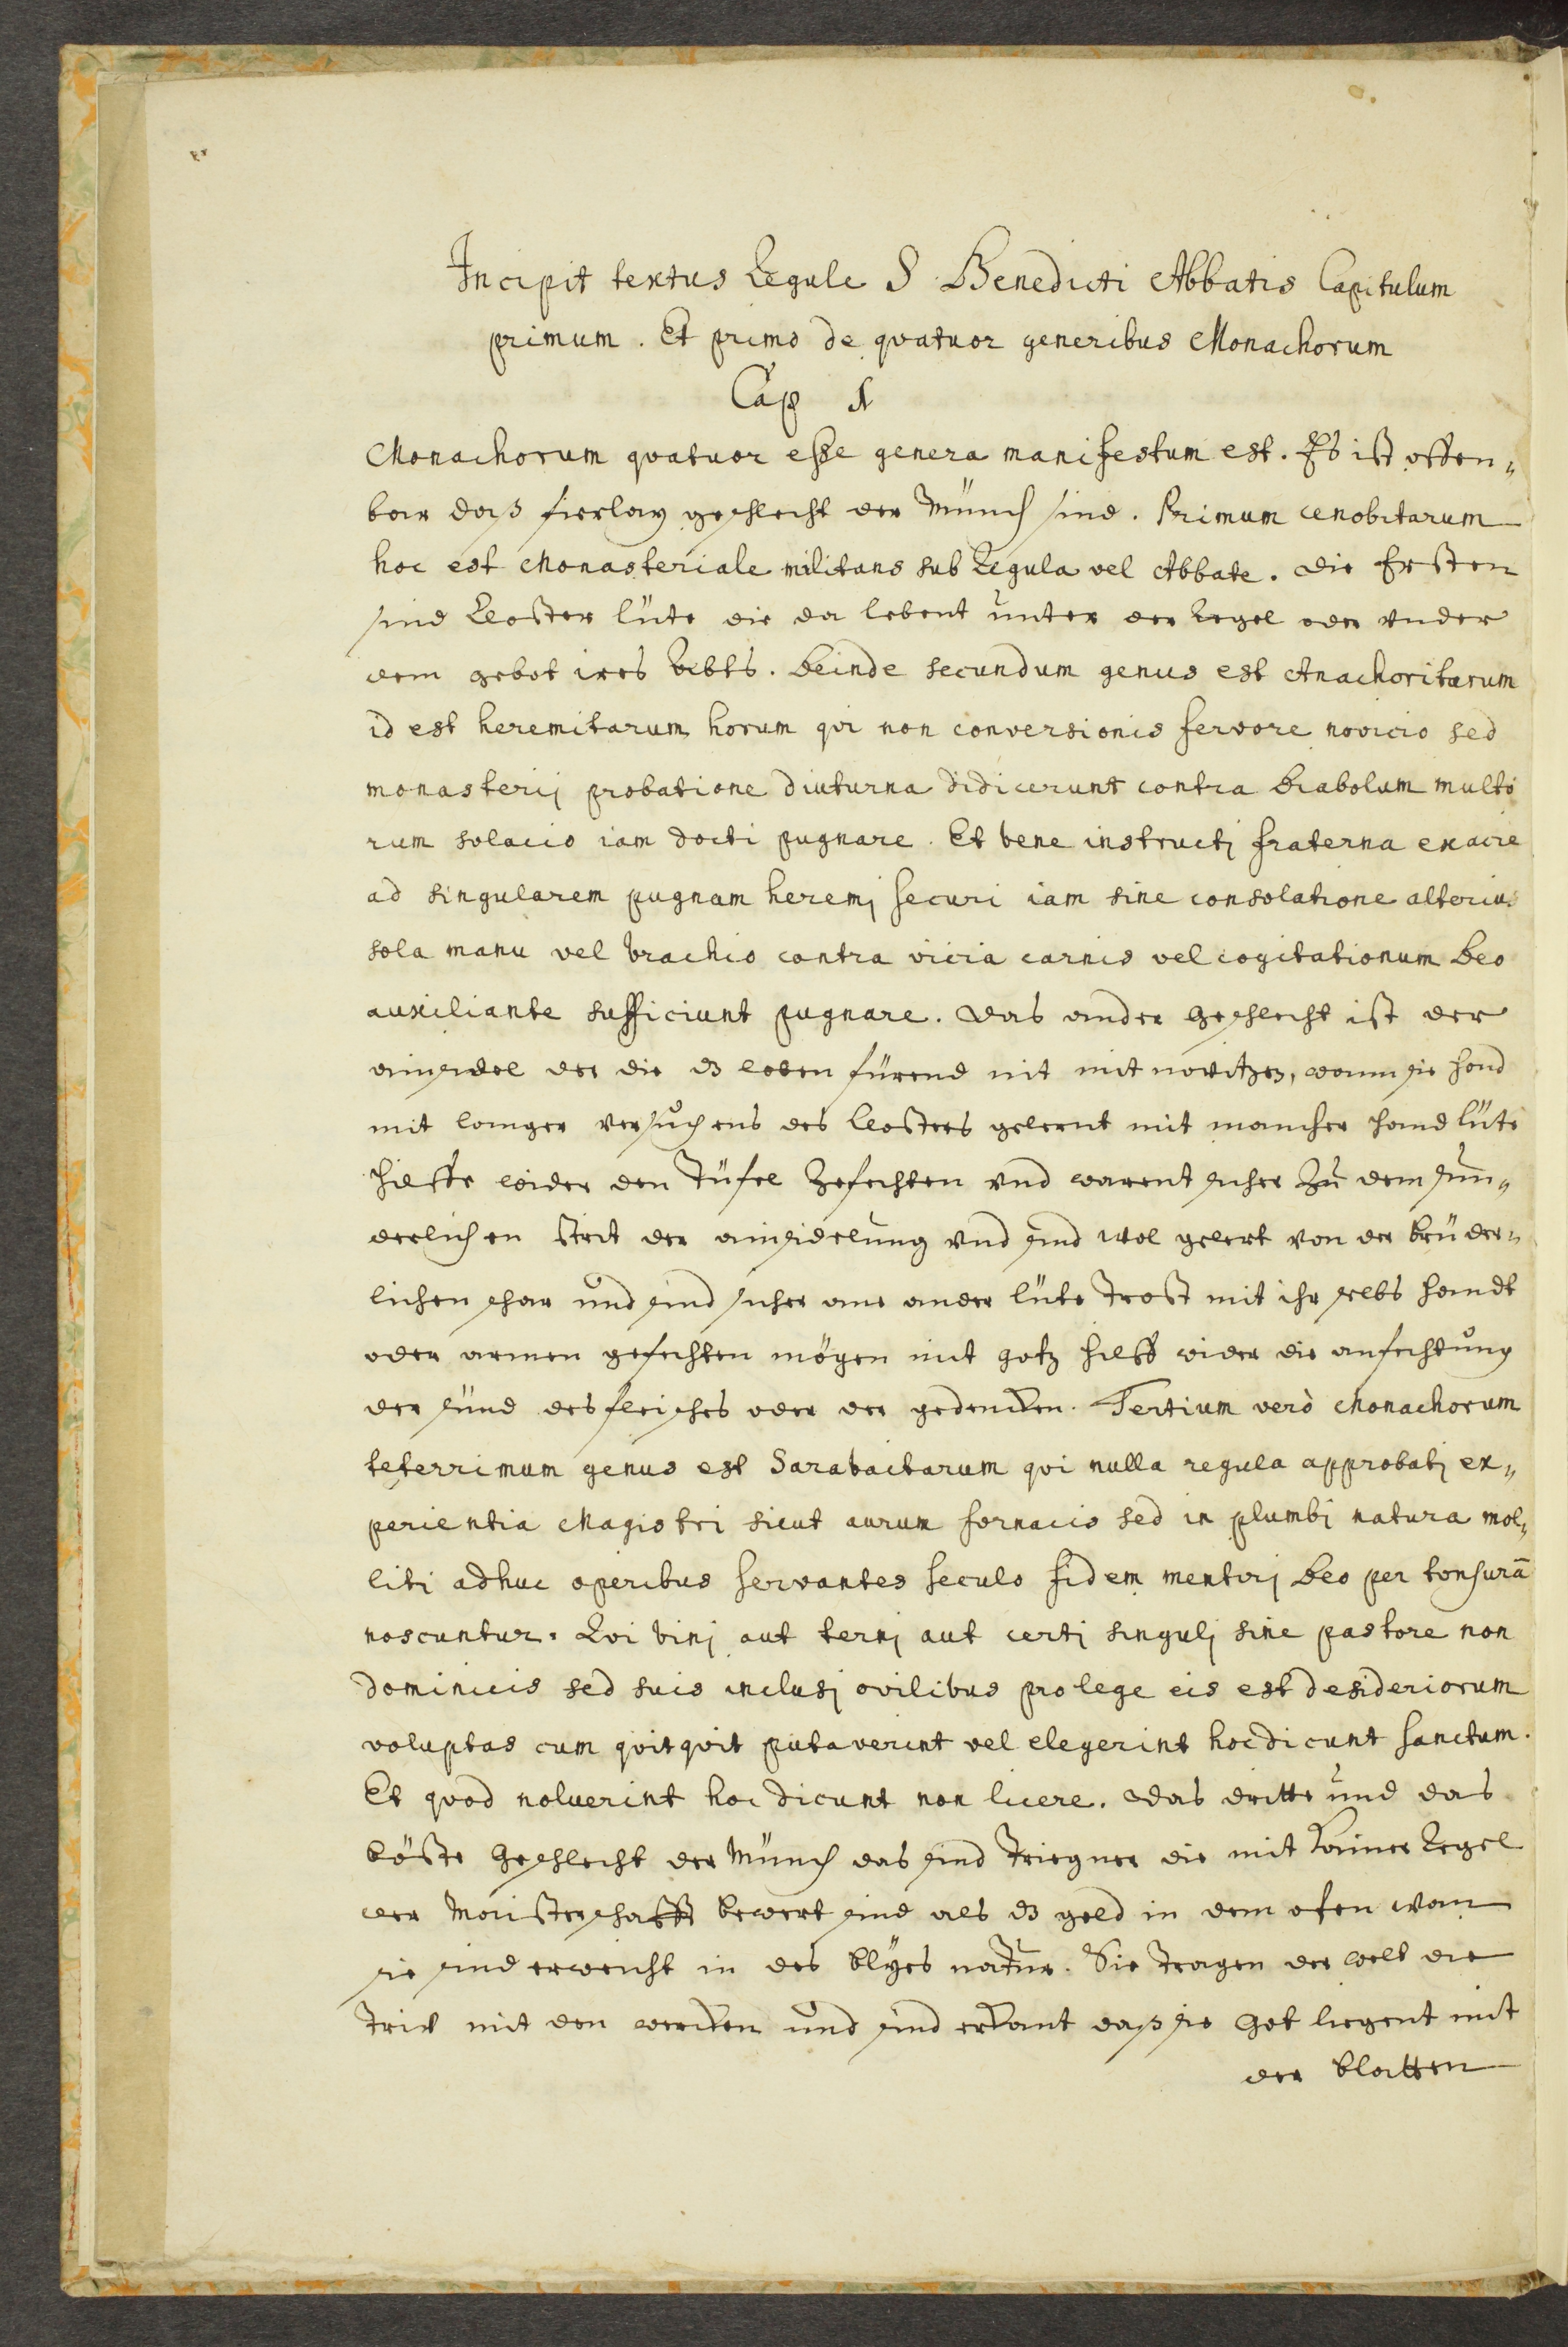 Incipit textus Regule S Benedicti Abbatis Capitulum
primum. Et primo de qvatuor generibus Monachorum
Cap 1
Monachorum qvatuor esse genera manifestum est. Es ist offen„
bar daß fierlay geschlecht der Münch sind. Primum cenobitarum
hoc est Monasteriale militans sub Regula vel Abbate. die Ersten
sind Closter lüte die da lebent unter der Regel oder vnder
dem gebot ires Abts. Deinde secundum genus est Anachoritarum
id est heremitarum horum qvi non conversionis fervore novicio sed
monasterij probatione diuturna didicerunt contra Diabolum multo
rum solacio iam docti pugnare. Et bene instructj fraterna ex acie
ad singularem pugnam heremj securi iam sine consolatione alterius
sola manu vel brachio contra vicia carnis vel cogitationum Deo
auxiliante sufficiunt pugnare. das ander geschlecht ist der
ainsidel der die dz leben fürend nit mit novitzen, wann sie hond
mit langer versuchens des Closters gelernt mit mancher hand lüte
hilffe wider den Tüfel Zefechten vnd warent sicher Zu dem sun„
derlichen strit der ainsidelung vnd sind wol gelert von der brüder„
lichen schar und sind sicher ane ander lüte Trost mit ihr selbs handt
oder armen gefechten mögen mit gotz hilff wider die anfechtung
der sünd des fleisches oder der gedencken. Tertium verò Monachorum
teterrimum genus est Sarabaitarum qvi nulla regula approbatj ex„
perientia Magistri sicut aurum fornacis sed in plumbj natura mol„
liti adhuc operibus servantes seculo fidem mentirj Deo per tonsurā
noscuntur. Qvi binj aut ternj aut certj singulj sine pastore non
dominicis sed suis inclusj ovilibus pro lege eis est desideriorum
voluptas cum qvitqvit putaverint vel elegerint hoc dicunt sanctum.
Et qvod noluerint hoc dicunt non licere. das dritte und das
böste geschlecht der Münch das sind Triegner die mit kainer Regel
der Maisterschafft bewert sind als dz gold in dem ofen wan
sie sind erweicht in des blyes natur. Sie tragen der welt die
Triw mit den wercken und sind erkant daß sie Got liegent mit
der blatten